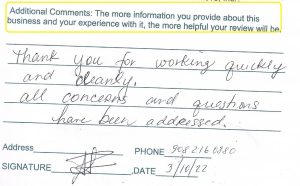 Additional Comments: The more information you provide about this
business and your experience with it, the more helpful your review will be.
Thank you for working quickly
and cleanly.
all concerns and questions
have been addressed.
Address
PHONE 908 216 0380
SIGNATURE DATE 3/10/22